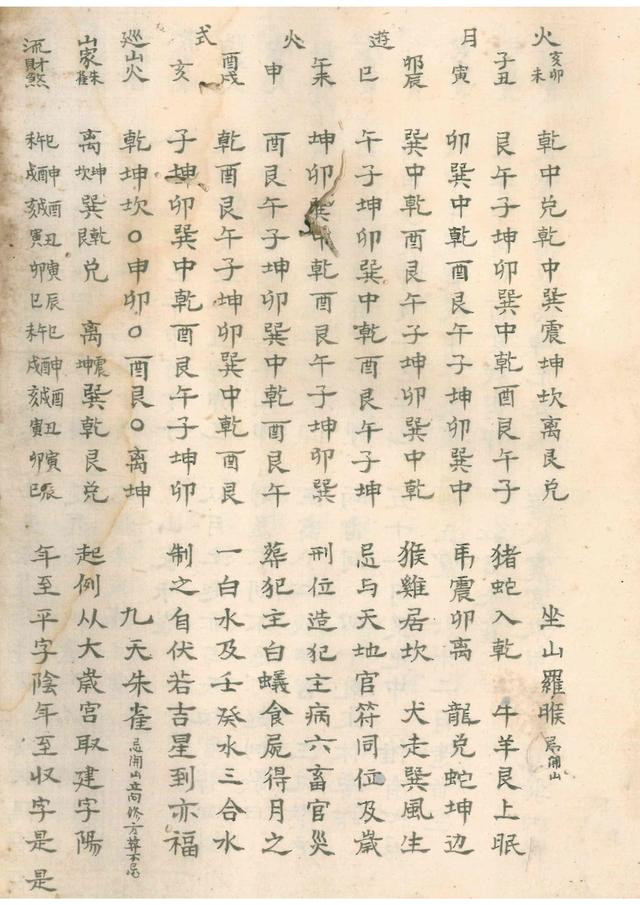 火 亥卯未 乾中兌乾中巽震坤坎離艮兌 坐山羅睺 忌開山
子丑 艮午子坤卯巽中乾酉艮午子 猪蛇入乾 牛羊艮上眠
月 寅 卯巽中乾酉艮午子坤卯巽中 馬震卯離 龍兌蛇坤边
卯辰 巽中乾酉艮午子坤卯巽中乾 猴雞居坎 犬走巽風生
遊 巳 午子坤卯巽中乾酉艮午子坤 忌与天地官符同位及歲
午未 坤卯巽中乾酉艮午子坤卯巽 刑位造犯主病六畜官災
火 申 酉艮午子坤卯巽中乾酉艮午 葬犯主白蟻食屍得月之
酉戌 乾酉艮午子坤卯巽中乾酉艮 一白水及壬癸水三合水
式 亥 子坤卯巽中乾酉艮午子坤卯 制之自伏若吉星到亦福
巡山火 乾坤坎○申卯○酉艮○離坤 九天朱雀 忌開山立向修方葬不忌
山家朱雀 離坤坎巽乾艮兌 離震坤巽乾艮兌 起例从大歲宮取建字陽
流財煞 巳午未申酉戌酉戌亥丑寅寅卯辰巳巳午未申酉戌酉戌亥丑寅寅卯辰巳 年至平字陰年至収字是是